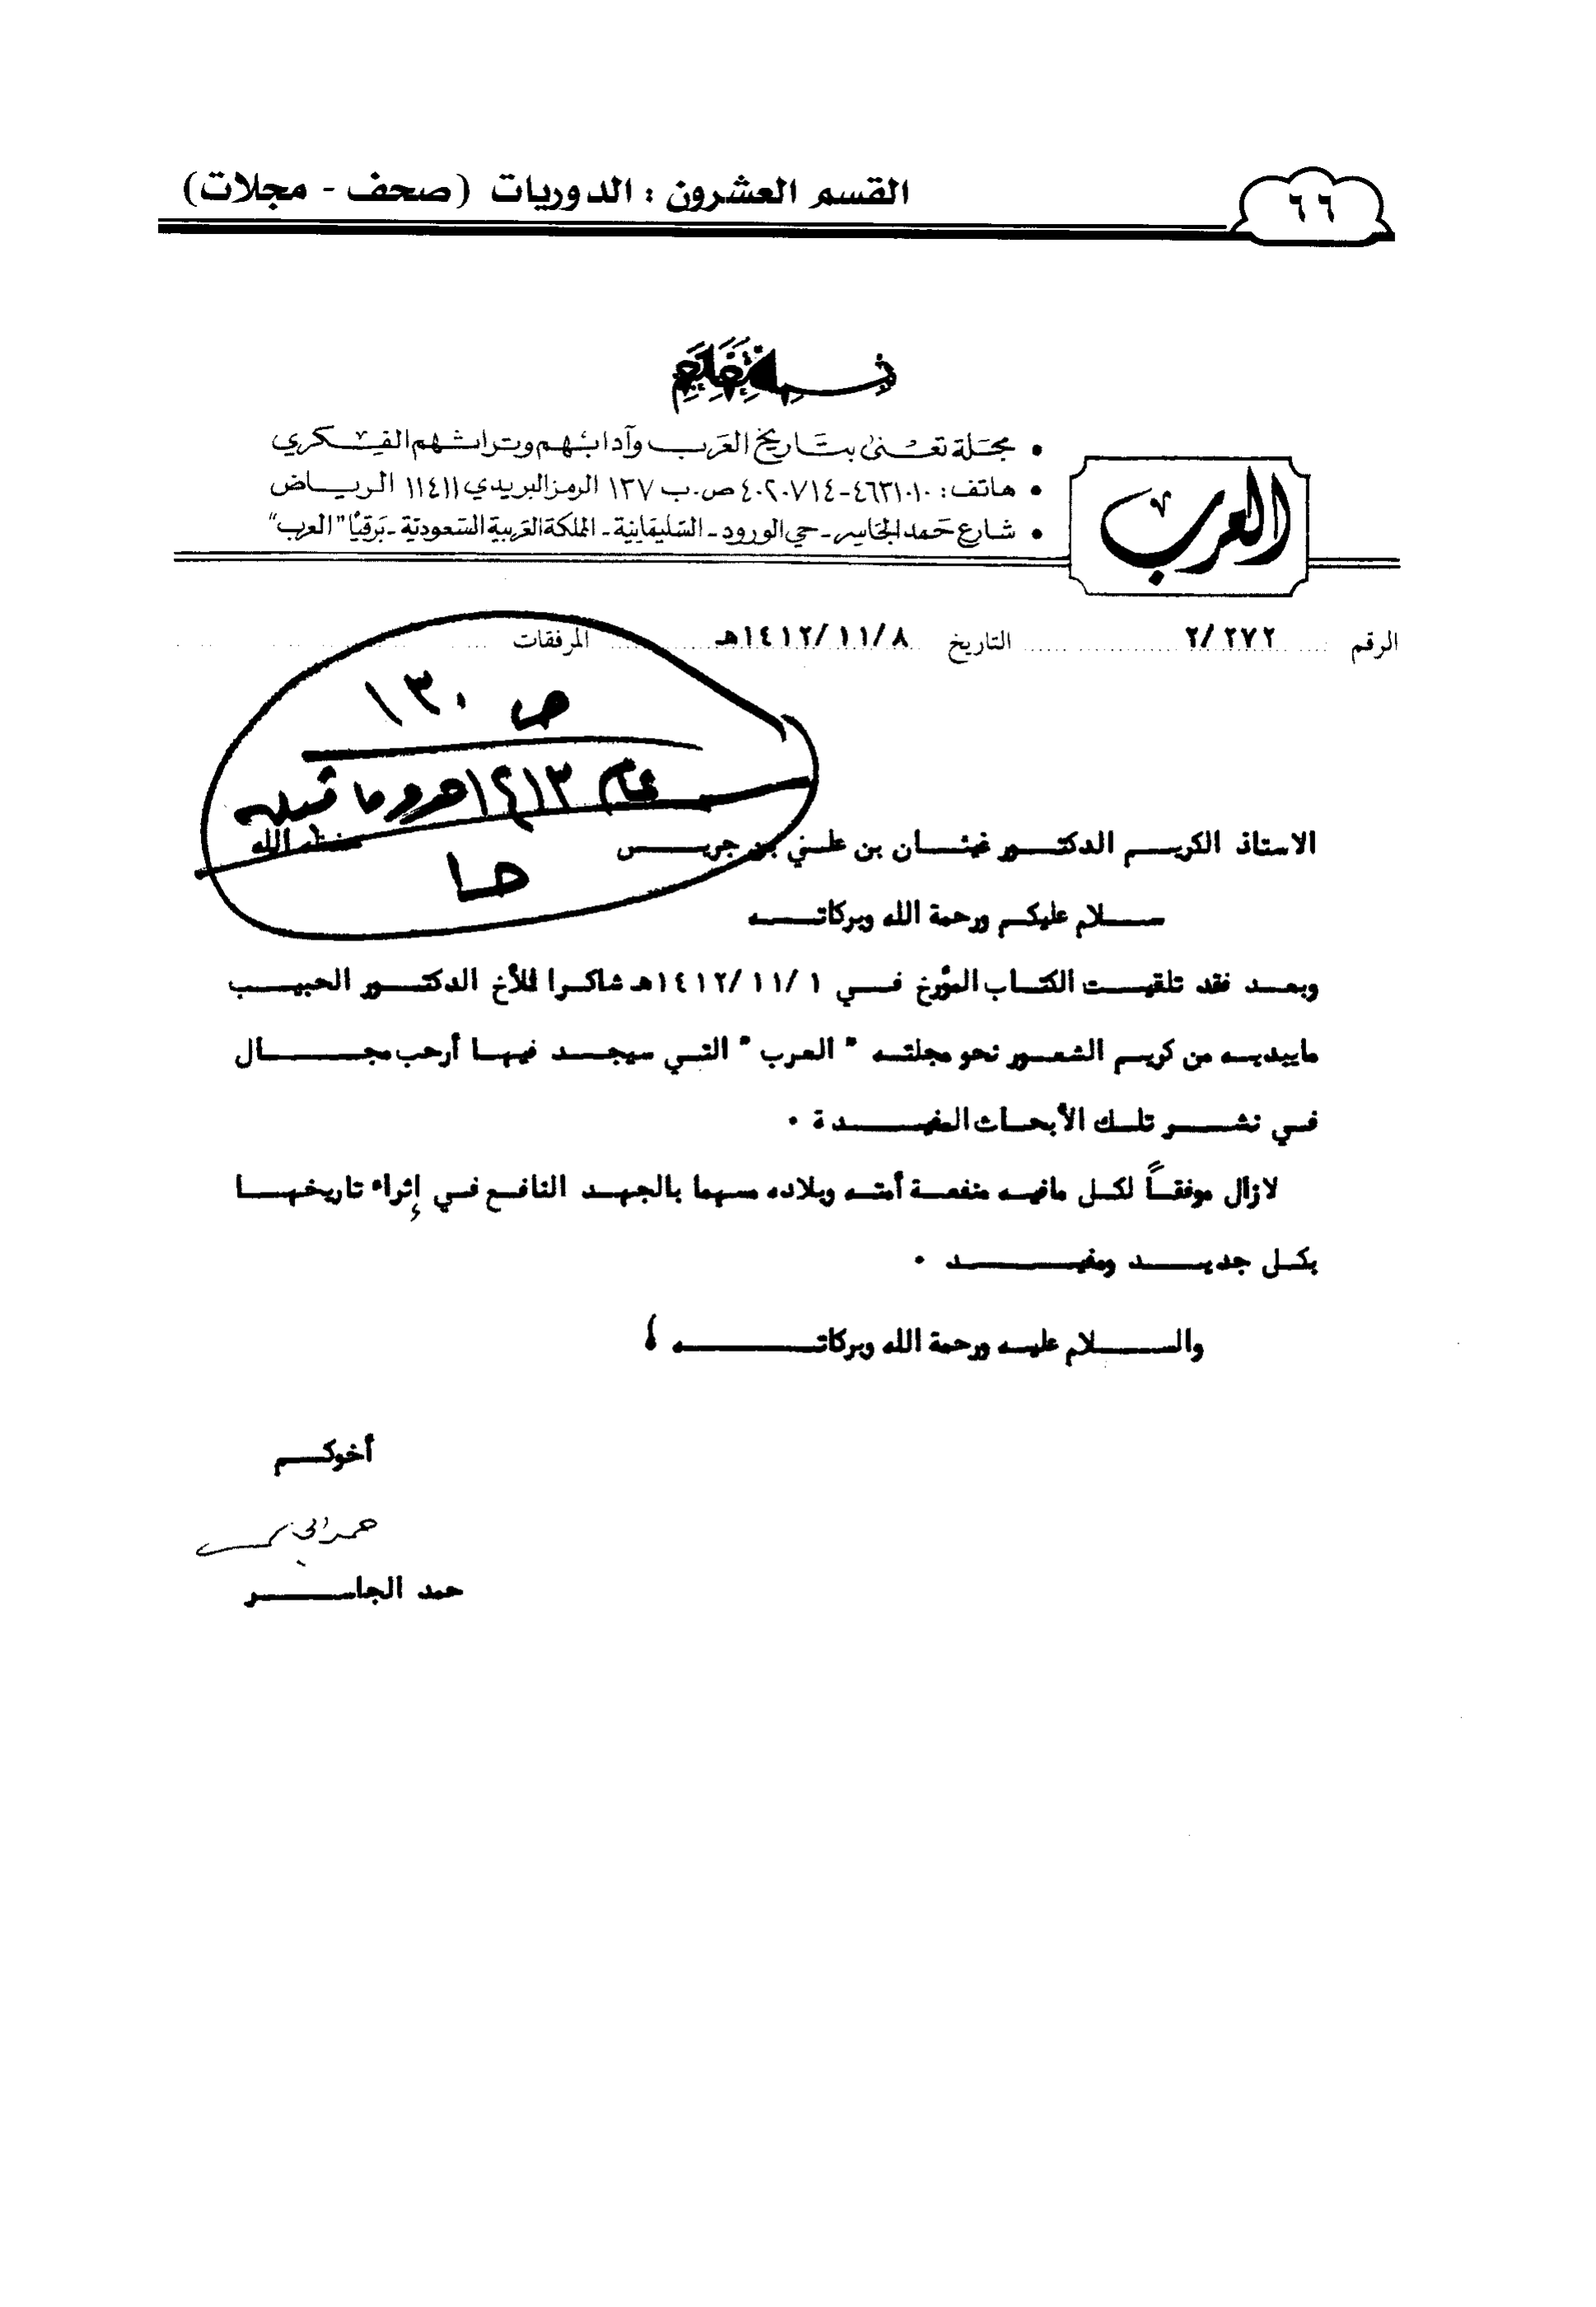 ٦٦
القسم العشرون : الدوريات (صحف - مجلات)
العرب
• مجلة تعنى بتاريخ العرب وآدابهم وتراثهم الفكري
• هاتف: ٤٦٣١٠١٠-٤٠٢٠٧١٤ ص.ب ١٣٧ الرمز البريدي ١١٤١١ الرياض
• شارع حمد الجاسر - حي الورود - السليمانية - المملكة العربية السعودية - برقيا "العرب"
الرقم ٢/٢٧٢ التاريخ ١٤١٢/١١/٨هـ المرفقات
ص ١٣٠
عام ١٤١٣هـ وما قبله
حا
الاستاذ الكريم الدكتور غيثان بن علي بن جريس حفظه الله
سلام عليكم ورحمة الله وبركاته
وبعد فقد تلقيت الكتاب المؤرخ في ١٤١٢/١١/١هـ شاكرا للأخ الدكتور الحبيب
مايبديه من كريم الشعور نحو مجلته " العرب " التي سيجد فيها أرحب مجال
في نشر تلك الأبحاث المفيدة .
لازال موفقاً لكل مافيه منفعة أمته وبلاده مسهما بالجهد النافع في إثراء تاريخها
بكل جديد ومفيد .
والسلام عليه ورحمة الله وبركاته
أخوكم
حمد الجاسر
حمد الجاسر